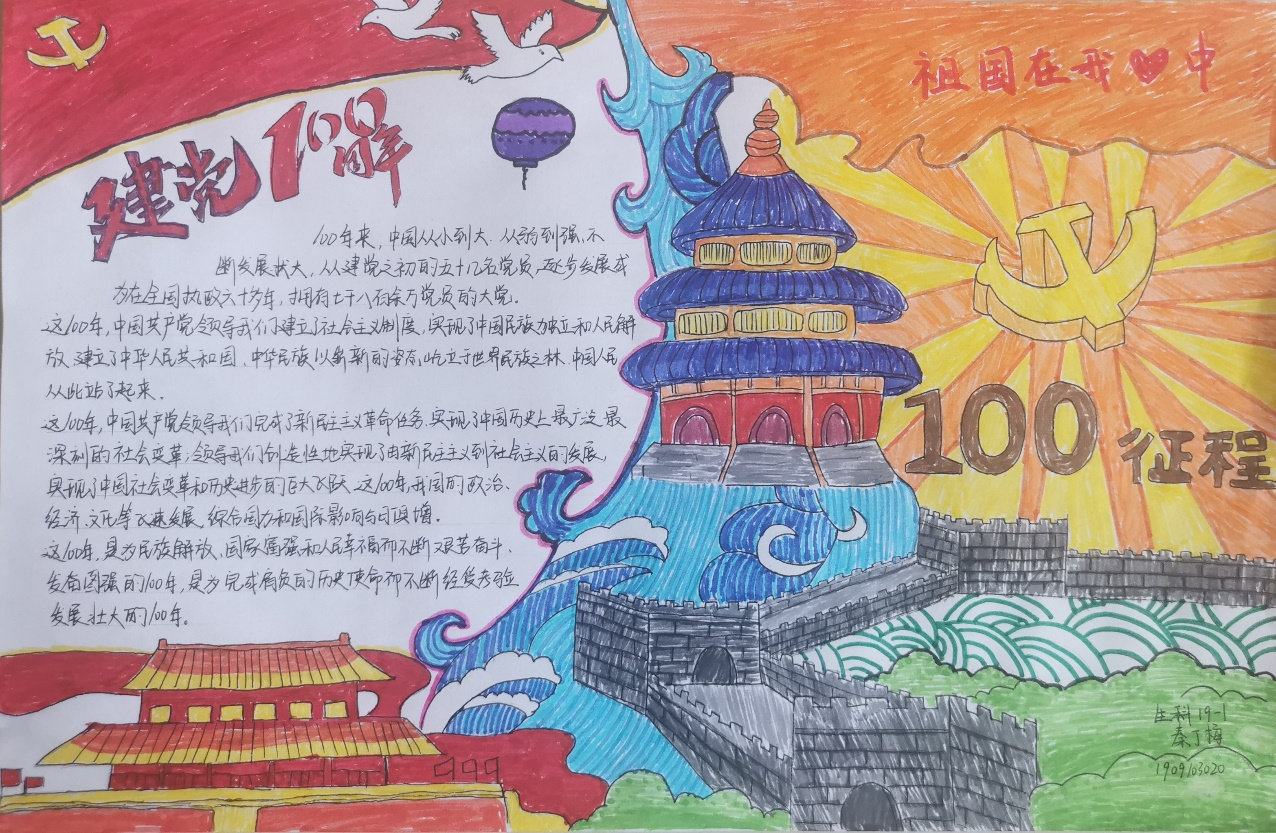 建党100周年
祖国在我中
100年来,中国从小到大、从弱到强、不
断发展壮大,从建党之初的五十几名党员,逐步发展成
为在全国执政六十多年,拥有七千八百余万党员的大党。
这100年,中国共产党领导我们建立了社会主义制度,实现了中国民族独立和人民解
放、建立了中华人民共和国、中华民族以崭新的姿态屹立于世界民族之林、中国人民
从此站了起来。
这100年,中国共产党领导我们完成了新民主主义革命任务、实现了中国历史上最广泛最
深刻的社会变革;领导我们创造性地实现了由新民主主义到社会主义的发展,
实现了中国社会变革和历史进步的巨大飞跃。这100年,我国的政治、
经济、文化等飞速发展,综合国力和国际影响与日俱增。
这100年,是为民族解放、国家富强和人民幸福而不断艰苦奋斗、
发奋图强的100年,是为完成肩负的历史使命而不断经受考验
发展壮大的100年。
100征程
生科19-1
秦丁梅
1909103020